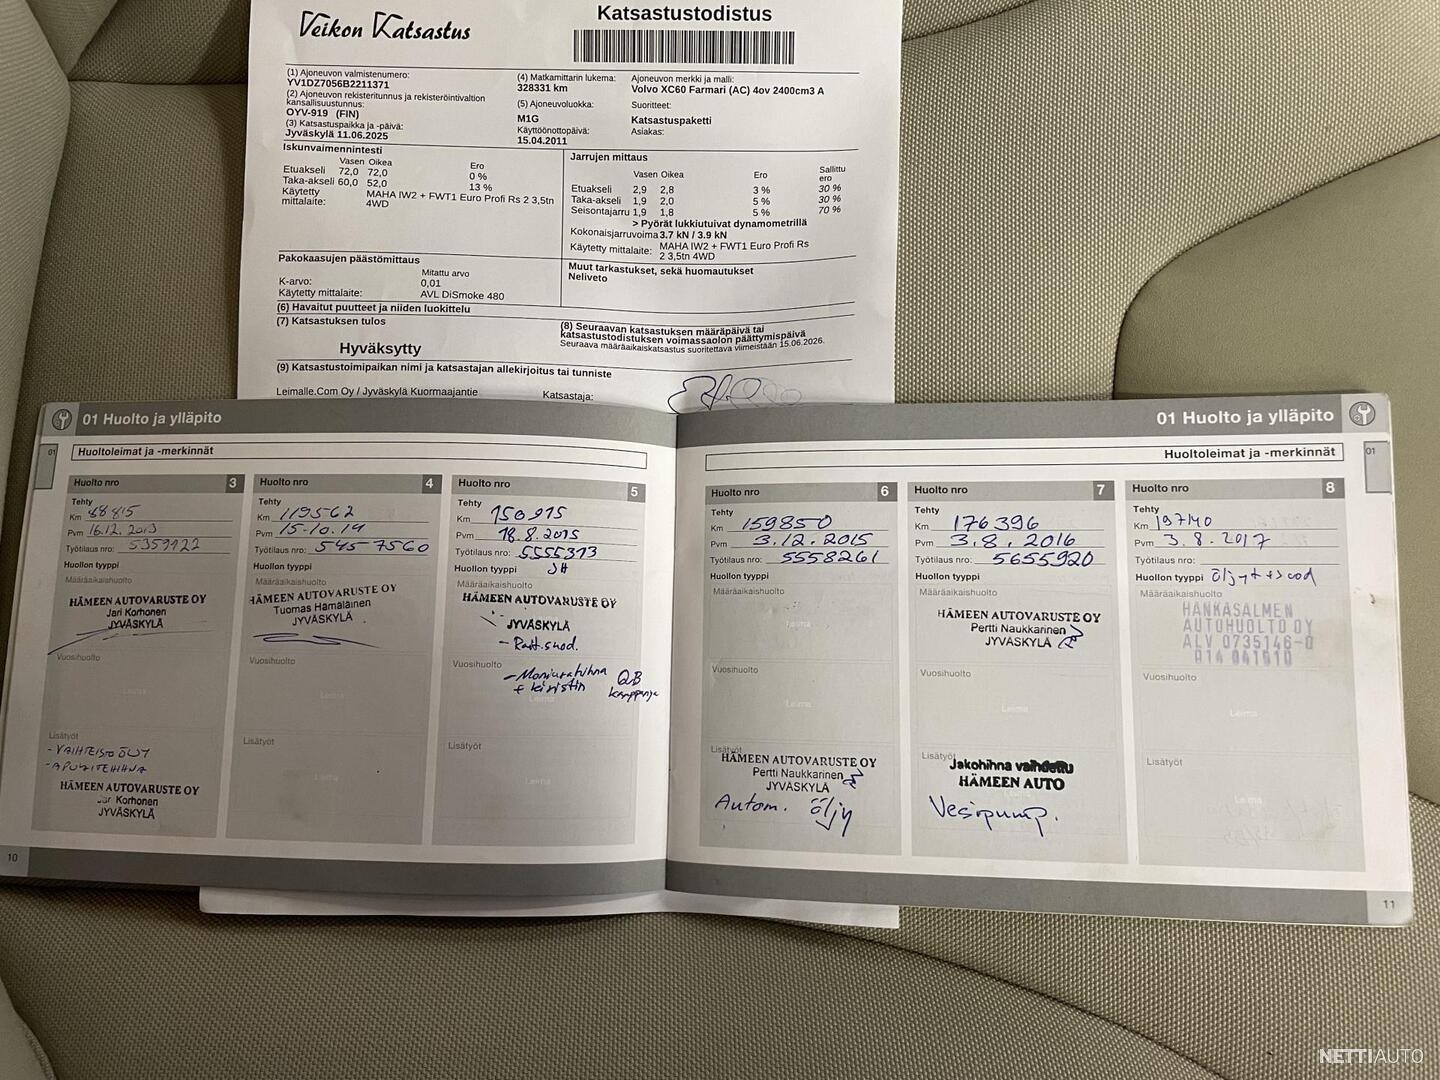 Veikon Katsastus
Katsastustodistus
(1) Ajoneuvon valmistenumero:
YV1DZ7056B2211371
(2) Ajoneuvon rekisteritunnus ja rekisteröintivaltion
kansallisuustunnus:
OYV-919 (FIN)
(3) Katsastuspaikka ja -päivä:
Jyväskylä 11.06.2025
(4) Matkamittarin lukema:
328331 km
(5) Ajoneuvoluokka:
M1G
Käyttöönottopäivä:
15.04.2011
Ajoneuvon merkki ja malli:
Volvo XC60 Farmari (AC) 4ov 2400cm3 A
Suoritteet:
Katsastuspaketti
Asiakas:
Iskunvaimennintesti
Vasen Oikea Ero
Etuakseli 72,0 72,0 0 %
Taka-akseli 60,0 52,0 13 %
Käytetty mittalaite: MAHA IW2 + FWT1 Euro Profi Rs 2 3,5tn
4WD
Jarrujen mittaus
Vasen Oikea Ero Sallittu
ero
Etuakseli 2,9 2,8 3 % 30 %
Taka-akseli 1,9 2,0 5 % 30 %
Seisontajarru 1,9 1,8 5 % 70 %
> Pyörät lukkiutuivat dynamometrillä
Kokonaisjarruvoima 3.7 kN / 3.9 kN
Käytetty mittalaite: MAHA IW2 + FWT1 Euro Profi Rs
2 3,5tn 4WD
Pakokaasujen päästömittaus
Mitattu arvo
K-arvo: 0,01
Käytetty mittalaite: AVL DiSmoke 480
Muut tarkastukset, sekä huomautukset
Neliveto
(6) Havaitut puutteet ja niiden luokittelu
(7) Katsastuksen tulos
Hyväksytty
(8) Seuraavan katsastuksen määräpäivä tai
katsastustodistuksen voimassaolon päättymispäivä
Seuraava määräaikaiskatsastus suoritettava viimeistään 15.06.2026.
(9) Katsastustoimipaikan nimi ja katsastajan allekirjoitus tai tunniste
Leimalle.Com Oy / Jyväskylä Kuormaajantie
Katsastaja:
01 Huolto ja ylläpito
01
Huoltoleimat ja -merkinnät
Huolto nro 3
Tehty
Km 88815
Pvm 16.12.2013
Työtilaus nro: 5359922
Huollon tyyppi
Määräaikaishuolto
HÄMEEN AUTOVARUSTE OY
Jari Korhonen
JYVÄSKYLÄ
Vuosihuolto
Leima
Lisätyöt
- VAIHTEISTOÖLJY
- APULAITEHIHNA
HÄMEEN AUTOVARUSTE OY
Jari Korhonen
JYVÄSKYLÄ
10
Huolto nro 4
Tehty
Km 119562
Pvm 15.10.14
Työtilaus nro: 5457560
Huollon tyyppi
Määräaikaishuolto
HÄMEEN AUTOVARUSTE OY
Tuomas Hämäläinen
JYVÄSKYLÄ
Vuosihuolto
Leima
Lisätyöt
Leima
Huolto nro 5
Tehty
Km 150915
Pvm 18.8.2015
Työtilaus nro: 5555313
Huollon tyyppi JH
Määräaikaishuolto
HÄMEEN AUTOVARUSTE OY
JYVÄSKYLÄ
- Rait.suod.
Vuosihuolto
- Moniurahihna
+ kiristin
QB
kamppanja
Leima
Lisätyöt
Leima
01 Huolto ja ylläpito
01
Huoltoleimat ja -merkinnät
Huolto nro 6
Tehty
Km 159850
Pvm 3.12.2015
Työtilaus nro: 5558261
Huollon tyyppi
Määräaikaishuolto
Leima
Vuosihuolto
Leima
Lisätyöt
HÄMEEN AUTOVARUSTE OY
Pertti Naukkarinen
JYVÄSKYLÄ
Autom. öljy
Huolto nro 7
Tehty
Km 176396
Pvm 3.8.2016
Työtilaus nro: 5655920
Huollon tyyppi
Määräaikaishuolto
HÄMEEN AUTOVARUSTE OY
Pertti Naukkarinen
JYVÄSKYLÄ
Vuosihuolto
Leima
Lisätyöt
Jakohihna vaihdettu
HÄMEEN AUTO
Vesipump.
Huolto nro 8
Tehty
Km 197140
Pvm 3.8.2017
Huollon tyyppi öljyt+suod
Määräaikaishuolto
HANKASALMEN
AUTOHUOLTO OY
ALV 0735146-0
014 841910
Vuosihuolto
Leima
Lisätyöt
Leima
11
NETTIAUTO